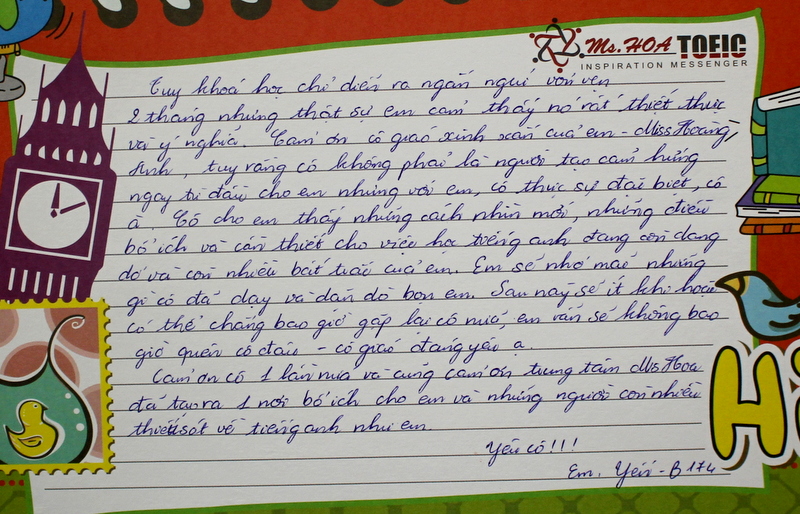 Ms. HOA TOEIC
INSPIRATION MESSENGER
Tuy khoá học chỉ diễn ra ngắn ngủi vỏn vẹn
2 tháng nhưng thật sự em cảm thấy nó rất thiết thực
và ý nghĩa. Cảm ơn cô giáo xinh xắn của em - Miss Hoàng
Anh, tuy rằng cô không phải là người tạo cảm hứng
ngay từ đầu cho em nhưng với em, cô thực sự đặc biệt, cô
ạ. Cô cho em thấy những cách nhìn mới, những điều
bổ ích và cần thiết cho việc học tiếng anh đang còn dang
dở và còn nhiều bất trắc của em. Em sẽ nhớ mãi những
gì cô đã dạy và dặn dò bọn em. Sau này sẽ ít khi hoặc
có thể chẳng bao giờ gặp lại cô nữa, em vẫn sẽ không bao
giờ quên cô đâu - cô giáo đáng yêu ạ.
Cảm ơn cô 1 lần nữa và cũng cảm ơn trung tâm Ms Hoa
đã tạo ra 1 nơi bổ ích cho em và những người còn nhiều
thiếu sót về tiếng anh như em
Yêu cô!!!
Em, Yến - B174
Hi